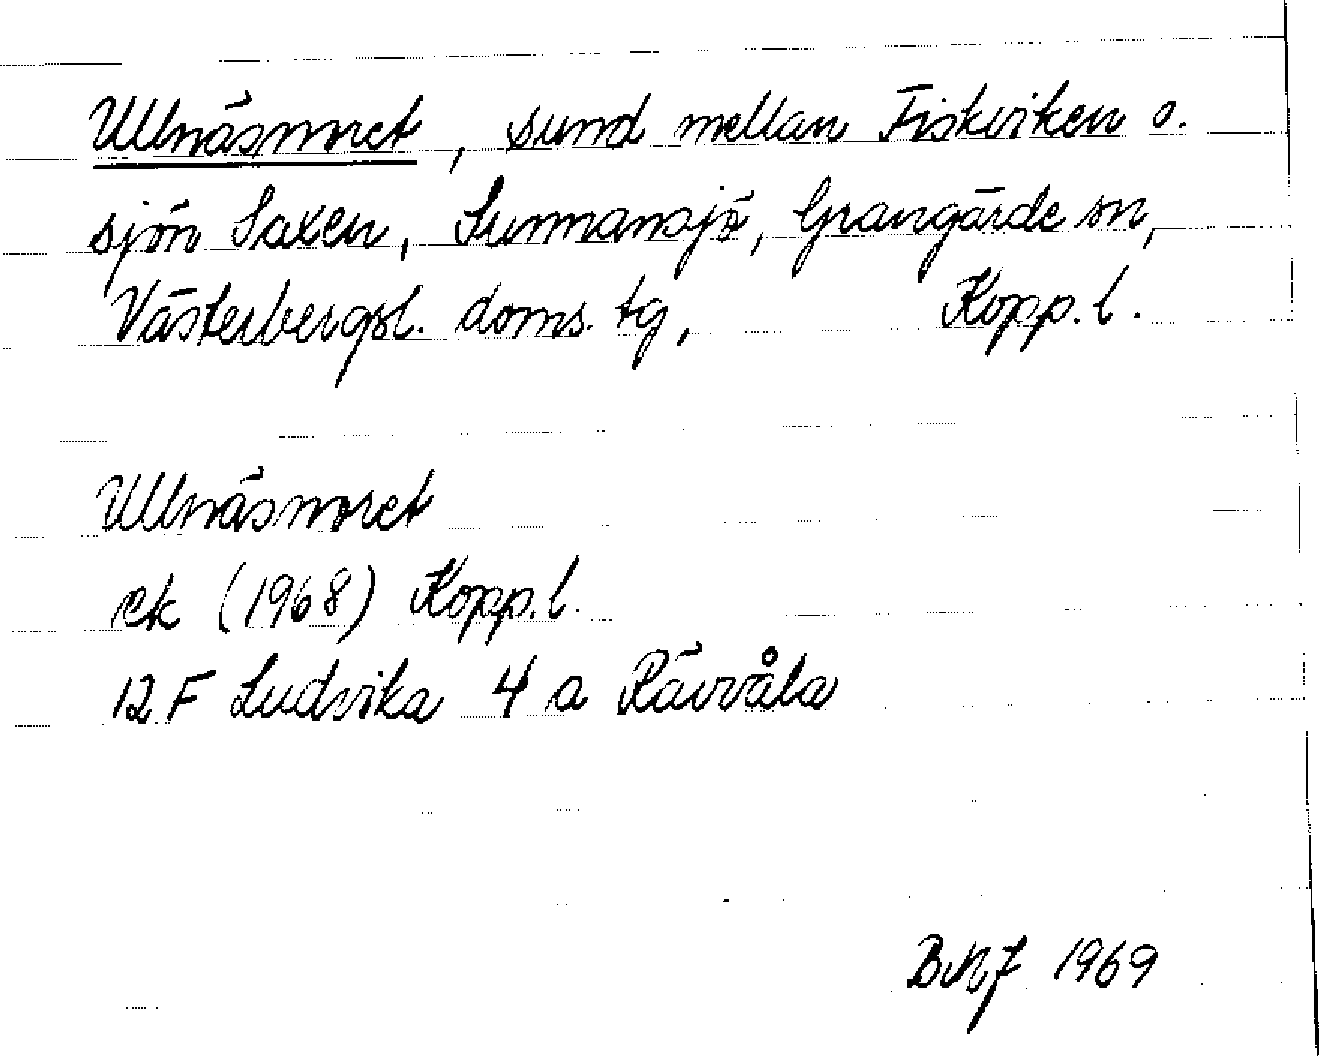 Ullnäsnoret, sund mellan Fiskviken o.
sjön Saxen, Sunnansjö, Grangärde sn,
Västerbergsl. doms. tg, Kopp. l.
Ullnäsnoret
ek (1968) Kopp. l.
12 F Ludvika 4 a Rävvåla
1969